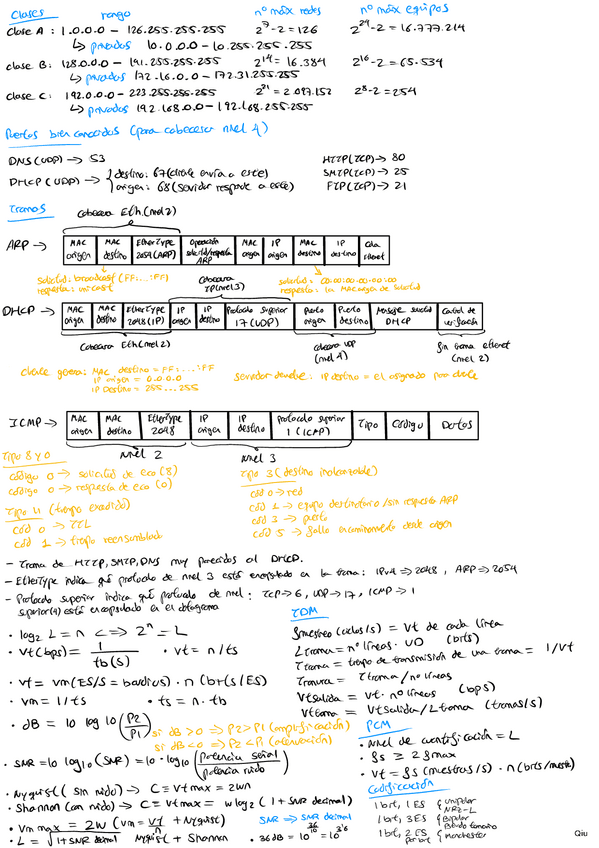 Clases rango nº máx redes nº máx equipos
Clase A : 1.0.0.0 – 126.255.255.255 2^7-2 = 126 2^24-2 = 16.777.214
↳ privadas 10.0.0.0 – 10.255.255.255
Clase B: 128.0.0.0 – 191.255.255.255 2^14 = 16.384 2^16-2 = 65.534
↳ privados 172.16.0.0 – 172.31.255.255
Clase C: 192.0.0.0 – 223.255.255.255 2^21 = 2.097.152 2^8-2 = 254
↳ privados 192.168.0.0 – 192.168.255.255
Puertos bien conocidos (para cabecera nivel 4)
DNS (UDP) → 53 HTTP (TCP) → 80
DHCP (UDP) → { destino: 67 (cliente envía a este) SMTP (TCP) → 25
origen: 68 (servidor responde a este) FTP (TCP) → 21
Tramas
Cabecera Eth. (nivel 2)
ARP → MAC origen MAC destino EtherType 2054 (ARP) Operación solicitud/respuesta ARP MAC origen IP origen MAC destino IP destino Cola ethernet
solicitud: broadcast (FF:...:FF) solicitud: 00:00:00:00:00:00
respuesta: unicast respuesta: la MAC origen de solicitud
Cabecera IP (nivel 3)
DHCP → MAC origen MAC destino EtherType 2048 (IP) IP origen IP destino Protocolo superior 17 (UDP) Puerto origen Puerto destino Mensaje solicitud DHCP Control de verificación
Cabecera Eth. (nivel 2) cabecera UDP (nivel 4) fin trama ethernet (nivel 2)
cliente genera: MAC destino = FF:...:FF servidor devuelve: IP destino = el asignado para cliente
IP origen = 0.0.0.0
IP destino = 255...255
ICMP → MAC origen MAC destino EtherType 2048 IP origen IP destino protocolo superior 1 (ICMP) Tipo Código Datos
Nivel 2 Nivel 3
Tipo 8 y 0 Tipo 3 (destino inalcanzable)
código 0 → solicitud de eco (8) cód 0 → red
código 0 → respuesta de eco (0) cód 1 → equipo destinatario / sin respuesta ARP
Tipo 11 (tiempo excedido) cód 3 → puerto
cód 0 → TTL cód 5 → fallo encaminamiento desde origen
cód 1 → tiempo reensamblado
- Trama de HTTP, SMTP, DNS muy parecidos al DHCP.
- EtherType indica qué protocolo de nivel 3 está encapsulado en la trama: IPv4 ⇒ 2048, ARP ⇒ 2054
- Protocolo superior indica qué protocolo de nivel superior (4) está encapsulado en el datagrama : TCP → 6, UDP → 17, ICMP → 1
· log2 L = n <=> 2^n = L
· Vt (bps) = 1 / tb(s) · Vt = n / ts
· Vt = Vm (ES/s = baudios) · n (bit(s)/ES)
· Vm = 1/ts · ts = n · tb
· dB = 10 log 10 (P2/P1) si dB > 0 => P2 > P1 (amplificación)
si dB < 0 => P2 < P1 (atenuación)
· SNR = 10 log10 (SNR) = 10 · log10 (potencia señal / potencia ruido)
· Nyquist (sin ruido) → C = Vtmax = 2wn
· Shannon (con ruido) → C = Vtmax = w log2 (1 + SNR decimal)
· Vm max = 2W (Vm = Vt/n + Nyquist) SNR → SNR decimal
· L = √1+SNR decimal Nyquist + Shannon · 36dB = 10^(36/10) = 10^3'6
TDM
fmuestreo (ciclos/s) = Vt de cada línea
Ltrama = nº líneas · UO (bits)
Ttrama = tiempo de transmisión de una trama = 1/Vt
Tranura = Ttrama / nº líneas
Vtsalida = Vt · nº líneas (bps)
Vttrama = Vtsalida / Ltrama (tramas/s)
PCM
· Nivel de cuantificación = L
· fs ≥ 2 fmax
· Vt = fs (muestras/s) · n (bits/muestra)
Codificación
1 bit, 1 ES { Unipolar NRZ-L
1 bit, 3 ES { Bipolar
1 bit, 2 ES { Manchester
Qiu